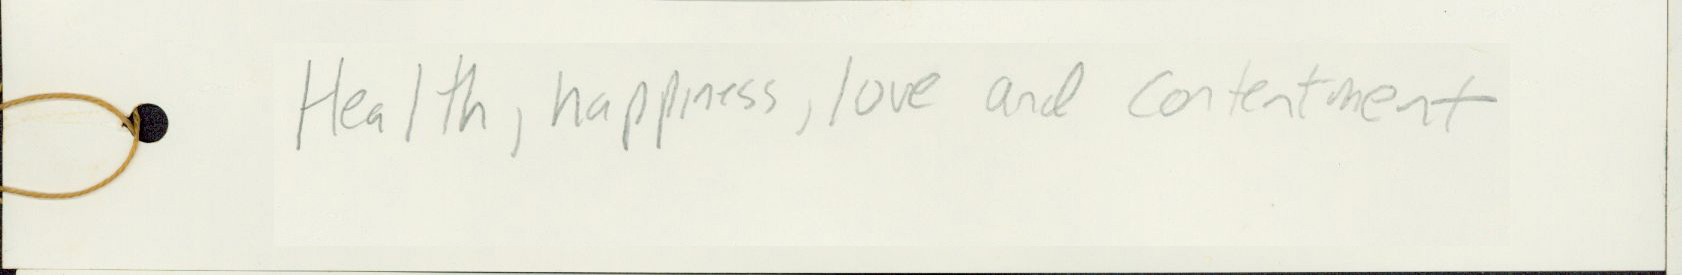 Health, happiness, love and contentment